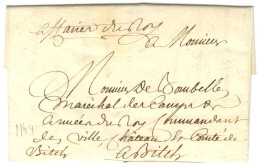 affaires du Roy
a Monsieur
Monsieur De Bombelles
Marechal des Camps et
armées du Roy Commandant
des Ville Chateau et Comté de
Bitch
1744
a Bitch